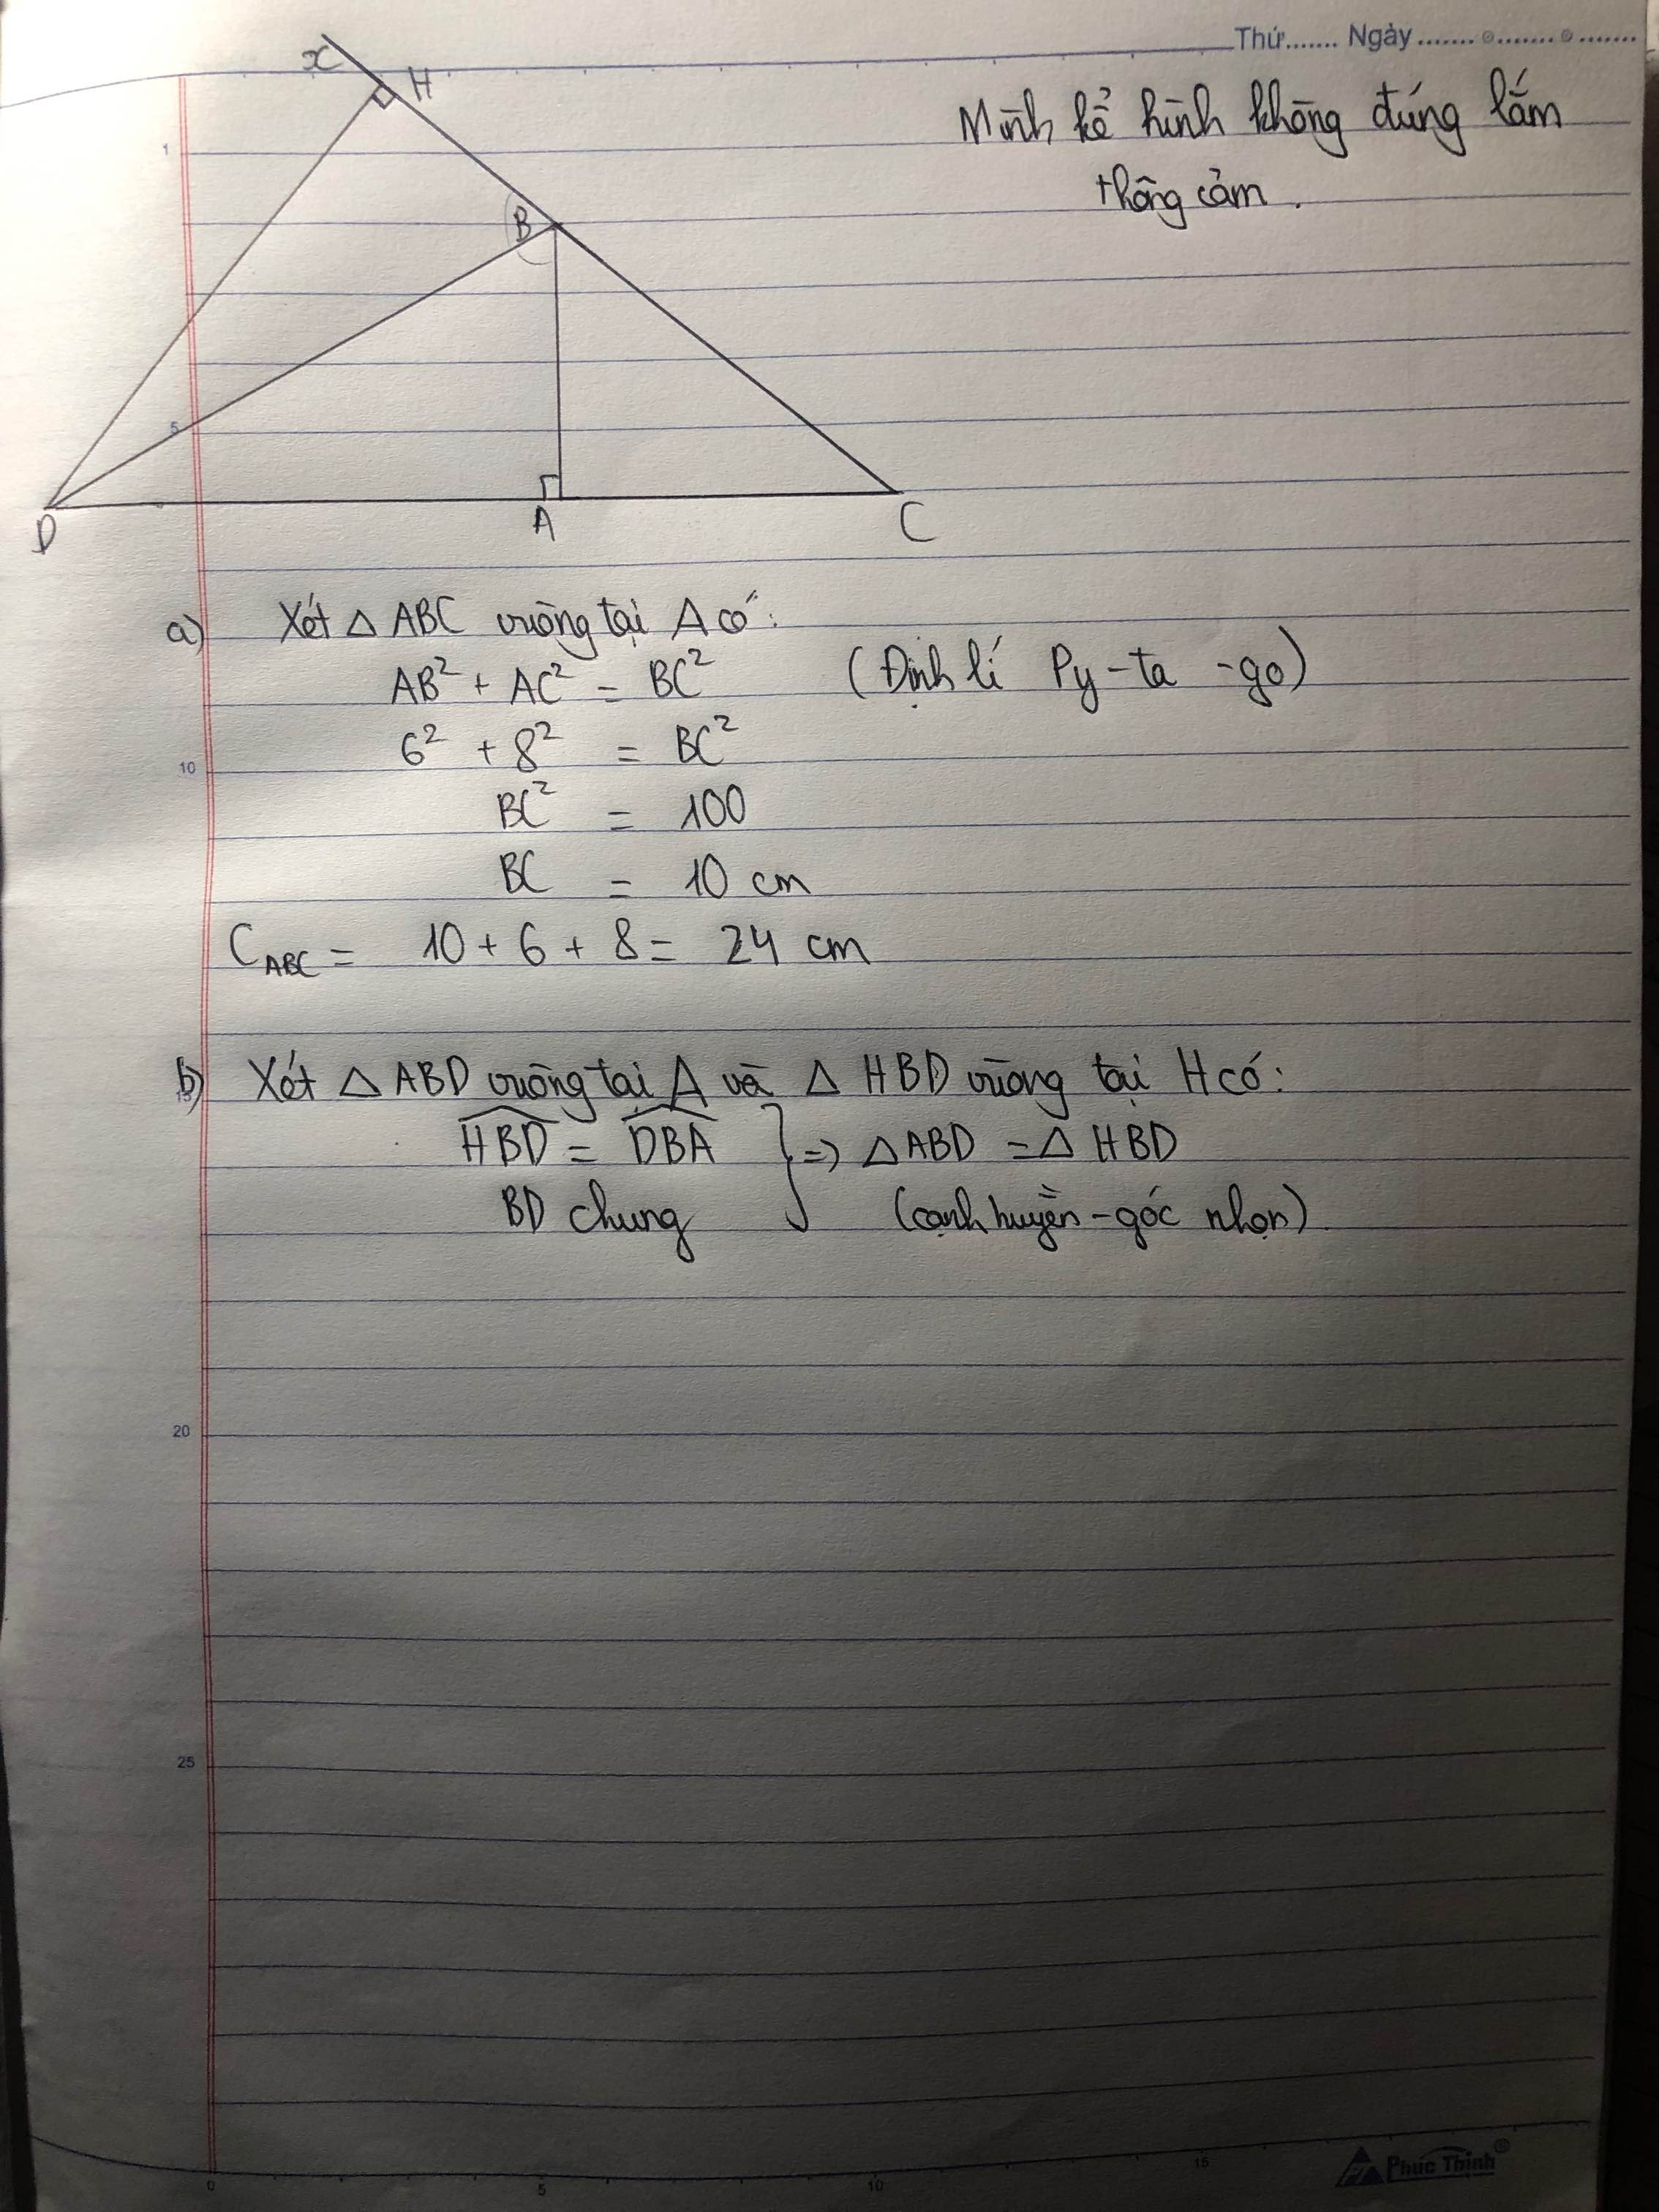 Thứ....... Ngày ....... ....... .......
x
H
Mình kẻ hình không đúng lắm
thông cảm.
1
B
5
D
A
C
a) Xét △ ABC vuông tại A có:
AB² + AC² = BC² (Định lí Py-ta-go)
6² + 8² = BC²
10
BC² = 100
BC = 10 cm
C_ABC = 10 + 6 + 8 = 24 cm
b) Xét △ ABD vuông tại A và △ HBD vuông tại H có:
HBD = DBA } => △ABD = △ HBD
BD chung (cạnh huyền-góc nhọn)
20
25
0
5
10
15
Phúc Thịnh®